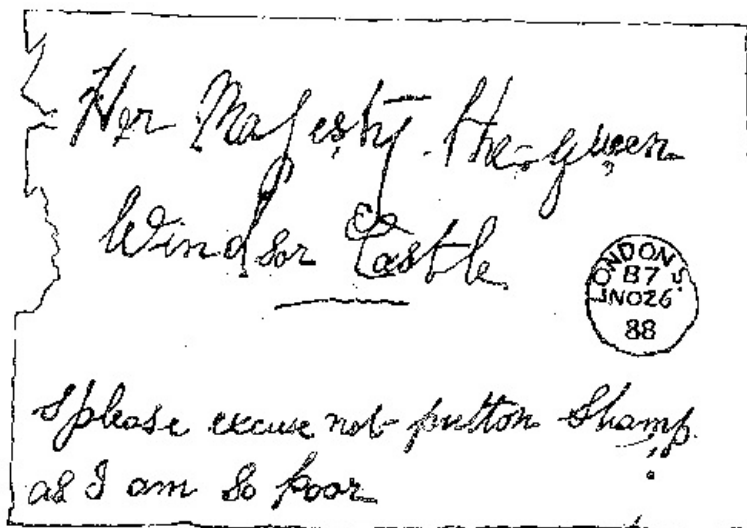 Her Majesty. the-queen
Windsor Castle
LONDON S.
B7
NO26
88
please excuse not putton Stamp
as I am so poor